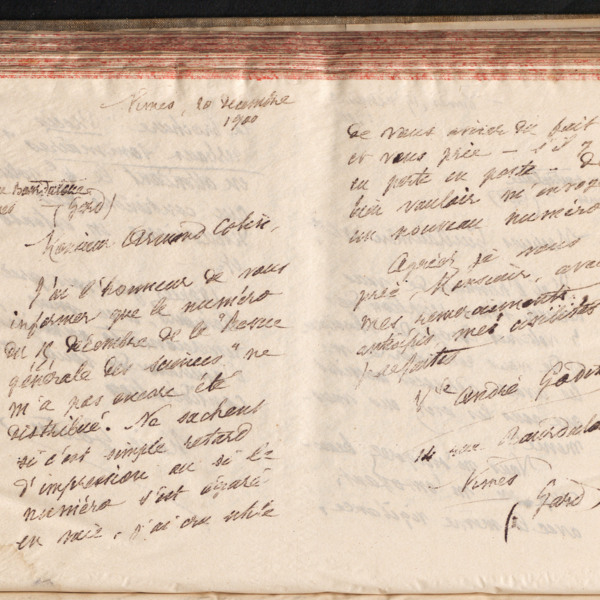 Nîmes, 20 décembre
1900
(Gard)
Monsieur Armand Colin,
J'ai l'honneur de vous
informer que le numéro
du 15 décembre de la "Revue
générale des sciences" ne
m'a pas encore été
distribué. Ne sachant
si c'est simple retard
d'impression ou si le
numéro s'est égaré
en voie, j'ai cru utile
de vous aviser du fait
et vous prie – s'il y
eu perte en poste – de
bien vouloir m'envoye
un nouveau numéro
Agréez je vous
prie, Monsieur, avec
mes remerciements
anticipés, mes civilités
parfaites
Vte André
14 rue
Nîmes
(Gard)